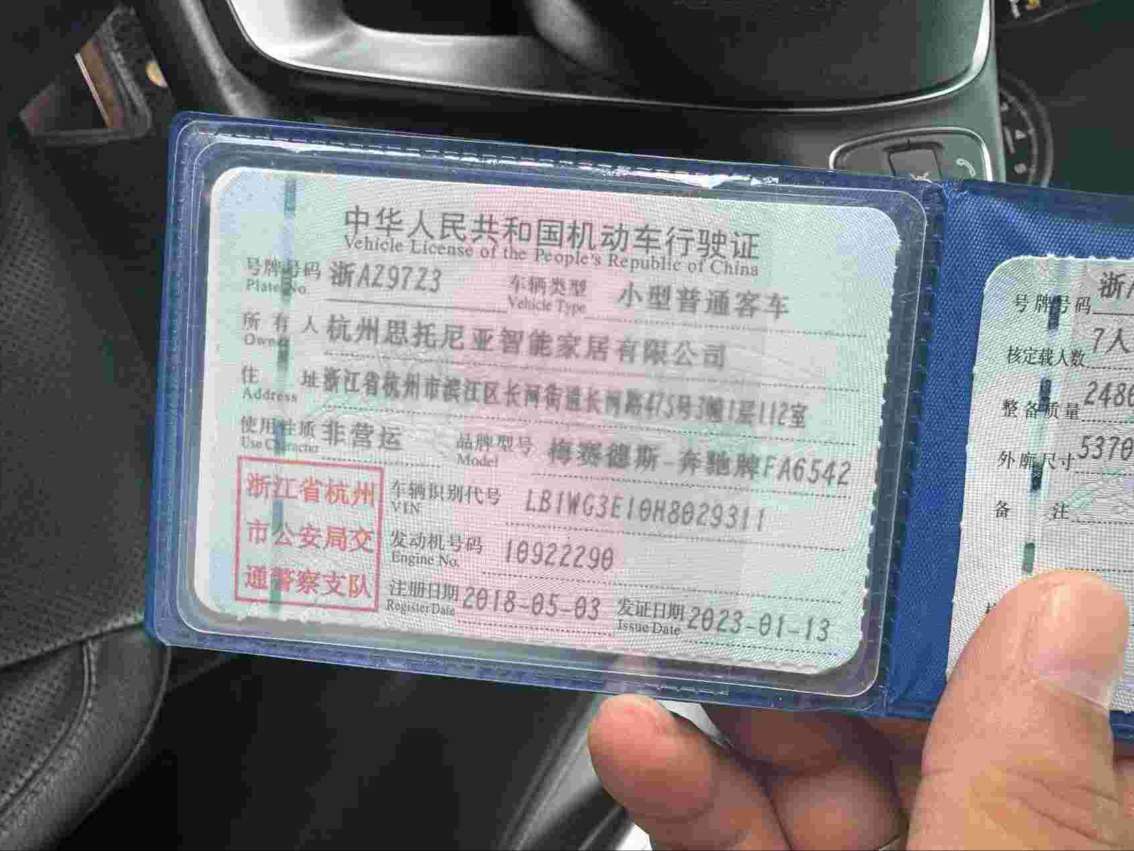 中华人民共和国机动车行驶证
Vehicle License of the People's Republic of China
号牌号码 浙AZ97Z3 车辆类型 小型普通客车
Plate No. Vehicle Type
所有人 杭州思托尼亚智能家居有限公司
Owner
住址 浙江省杭州市滨江区长河街道长河路475号3幢1层112室
Address
使用性质 非营运 品牌型号 梅赛德斯-奔驰牌FA6542
Use Character Model
浙江省杭州
市公安局交
通警察支队
车辆识别代号 LB1WG3E10H8029311
VIN
发动机号码 10922290
Engine No.
注册日期 2018-05-03 发证日期 2023-01-13
Register Date Issue Date
号牌号码 浙
核定载人数 7人
整备质量 248
外廓尺寸 5370
备注